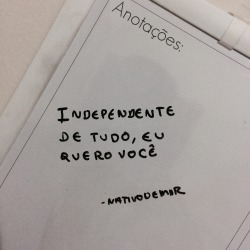 Anotações:
INDEPENDENTE
DE TUDO, EU
QUERO VOCÊ
-NATIVODEMAR